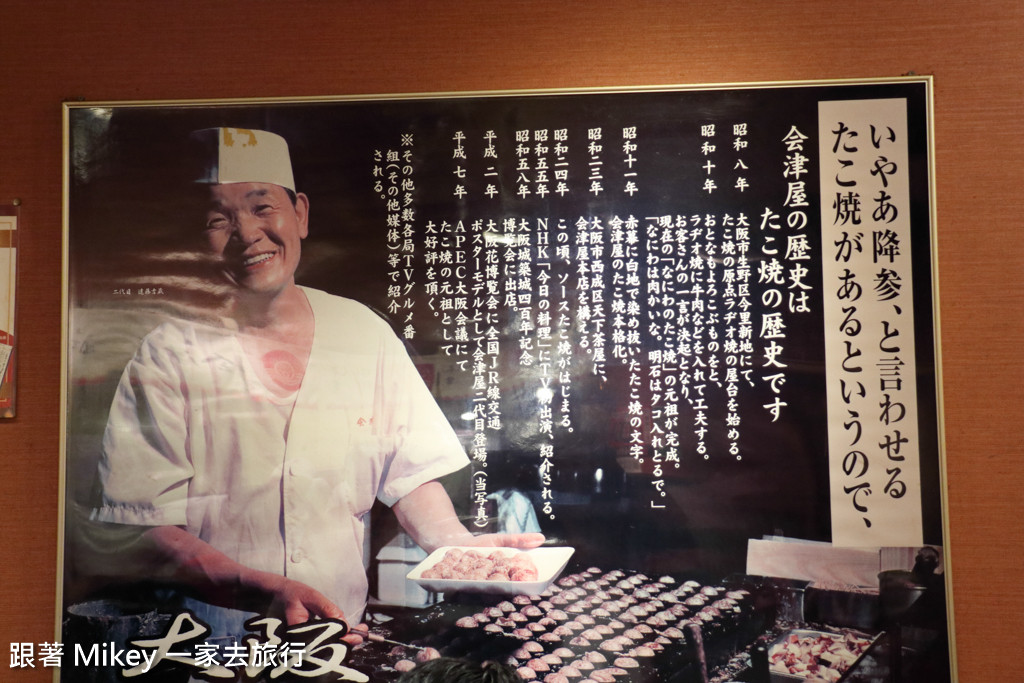 いやあ降参、と言わせる
たこ焼があるというので、
会津屋の歴史は
たこ焼の歴史です
昭和八年
大阪市生野区今里新地にて、
たこ焼の原点ラヂオ焼の屋台を始める。
昭和十年
おとなもよろこぶものをと、
ラヂオ焼に牛肉などを入れて工夫する。
お客さんの一言が決起となり、
現在の「なにわのたこ焼」の元祖が完成。
「なにわは肉かいな。明石はタコ入れとるで。」
昭和十一年
赤幕に白地で染め抜いたたこ焼の文字。
会津屋のたこ焼本格化。
昭和二三年
大阪市西成区天下茶屋に、
会津屋本店を構える。
昭和二四年
この頃、ソースたこ焼がはじまる。
昭和五五年
NHK「今日の料理」にTV初出演、紹介される。
昭和五八年
大阪城築城四百年記念
博覧会に出店。
平成二年
大阪花博覧会に全国JR線交通
ポスターモデルとして会津屋二代目登場。(当写真)
平成七年
APEC大阪会議にて
たこ焼の元祖として
大好評を頂く。
※その他多数各局TVグルメ番
組(その他媒体)等で紹介
される。
二代目
大阪
跟著 Mikey 一家去旅行